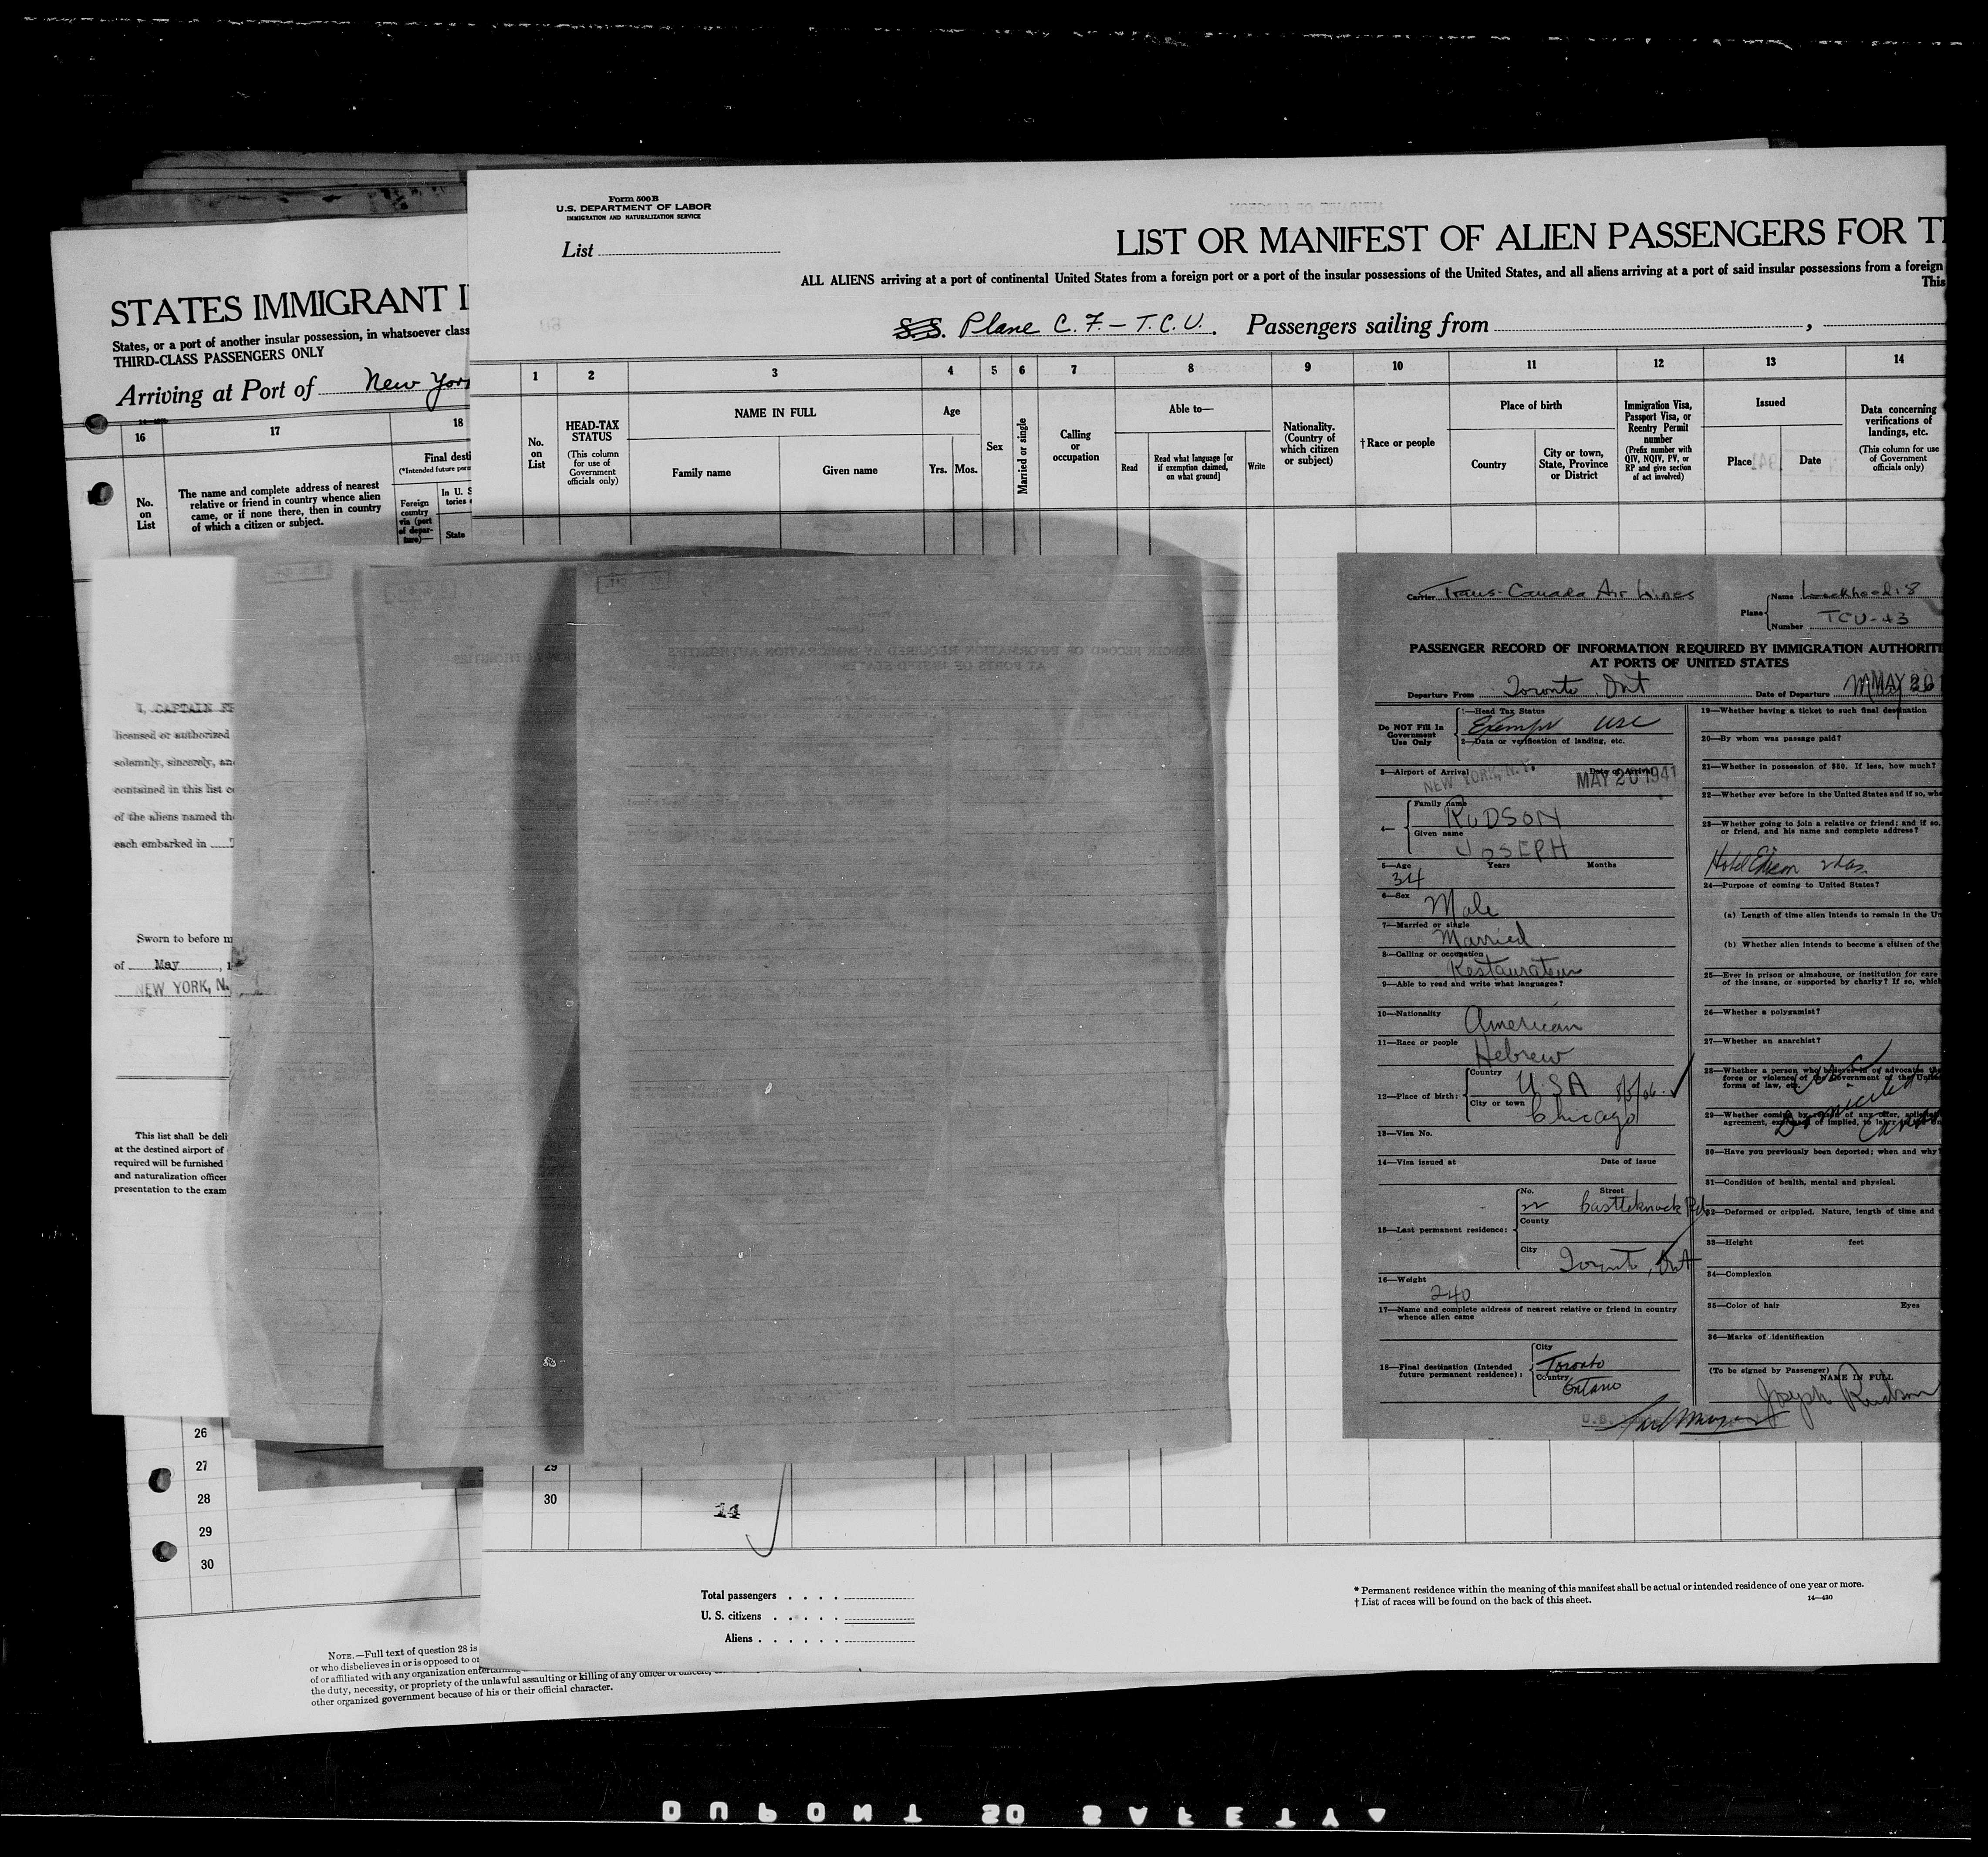 Form 500 B
U.S. DEPARTMENT OF LABOR
IMMIGRATION AND NATURALIZATION SERVICE
List
LIST OR MANIFEST OF ALIEN PASSENGERS FOR T
ALL ALIENS arriving at a port of continental United States from a foreign port or a port of the insular possessions of the United States, and all aliens arriving at a port of said insular possessions from a foreign
This
S.S. Plane C. F. - T.C.U. Passengers sailing from ,
1 2 3 4 5 6 7 8 9 10 11 12 13 14
No. on List
HEAD-TAX STATUS
(This column for use of Government officials only)
NAME IN FULL
Family name
Given name
Age
Yrs. Mos.
Sex
Married or single
Calling or occupation
Able to—
Read
Read what language [or if exemption claimed, on what ground]
Write
Nationality. (Country of which citizen or subject)
†Race or people
Place of birth
Country
City or town, State, Province or District
Immigration Visa, Passport Visa, or Reentry Permit number
(Prefix number with QIV, NQIV, PV, or RP and give section of act involved)
Issued
Place
Date
Data concerning verifications of landings, etc.
(This column for use of Government officials only)
STATES IMMIGRANT I
States, or a port of another insular possession, in whatsoever class
THIRD-CLASS PASSENGERS ONLY
Arriving at Port of New York
16 17 18
No. on List
The name and complete address of nearest relative or friend in country whence alien came, or if none there, then in country of which a citizen or subject.
Final desti
(*Intended future perm
Foreign country via (port of departure)—
In U. S
tories
State
I, CAPTAIN
licensed or authorized
solemnly, sincerely, an
contained in this list
of the aliens named th
each embarked in
Sworn to before m
of May , 1
NEW YORK, N.
This list shall be deli
at the destined airport of
required will be furnished
and naturalization officer
presentation to the exam
Carrier Trans-Canada Air Lines
Plane
Name Lockheed 18
Number TCU-43
PASSENGER RECORD OF INFORMATION REQUIRED BY IMMIGRATION AUTHORITI
AT PORTS OF UNITED STATES
Departure From Toronto Ont Date of Departure MAY 20
Do NOT Fill In
Government
Use Only
1—Head Tax Status
Exempt USC
2—Data or verification of landing, etc.
3—Airport of Arrival Date of Arrival
NEW YORK, N.Y. MAY 20 1941
4—
Family name
RUDSON
Given name
JOSEPH
5—Age Years Months
34
6—Sex
Male
7—Married or single
Married
8—Calling or occupation
Restaurateur
9—Able to read and write what languages?
10—Nationality
American
11—Race or people
Hebrew
12—Place of birth:
Country
USA
City or town
Chicago
13—Visa No.
14—Visa issued at Date of issue
15—Last permanent residence:
No. Street
22 Castleknock Rd
County
City
Toronto, Ont
16—Weight
240
17—Name and complete address of nearest relative or friend in country
whence alien came
18—Final destination (Intended
future permanent residence):
City
Toronto
Country
Ontario
19—Whether having a ticket to such final destination
20—By whom was passage paid?
21—Whether in possession of $50. If less, how much?
22—Whether ever before in the United States and if so, whe
23—Whether going to join a relative or friend; and if so,
or friend, and his name and complete address?
Hotel Edison
24—Purpose of coming to United States?
(a) Length of time alien intends to remain in the Un
(b) Whether alien intends to become a citizen of the
25—Ever in prison or almshouse, or institution for care
of the insane, or supported by charity? If so, which
26—Whether a polygamist?
27—Whether an anarchist?
28—Whether a person who believes in or advocates the
force or violence of the Government of the United
forms of law, etc.
29—Whether coming by reason of any offer, solicit
agreement, expressed or implied, to labor in the Un
30—Have you previously been deported; when and why?
31—Condition of health, mental and physical.
32—Deformed or crippled. Nature, length of time and
33—Height feet
34—Complexion
35—Color of hair Eyes
36—Marks of identification
(To be signed by Passenger)
NAME IN FULL
Joseph Rudson
U.S.
26
27
28
29
30
29
30
14
Total passengers
U. S. citizens
Aliens
* Permanent residence within the meaning of this manifest shall be actual or intended residence of one year or more.
† List of races will be found on the back of this sheet.
14—430
NOTE.—Full text of question 28 is
or who disbelieves in or is opposed to or
of or affiliated with any organization entertaining
the duty, necessity, or propriety of the unlawful assaulting or killing of any officer or officers,
other organized government because of his or their official character.
DUPONT 20 SAFETY